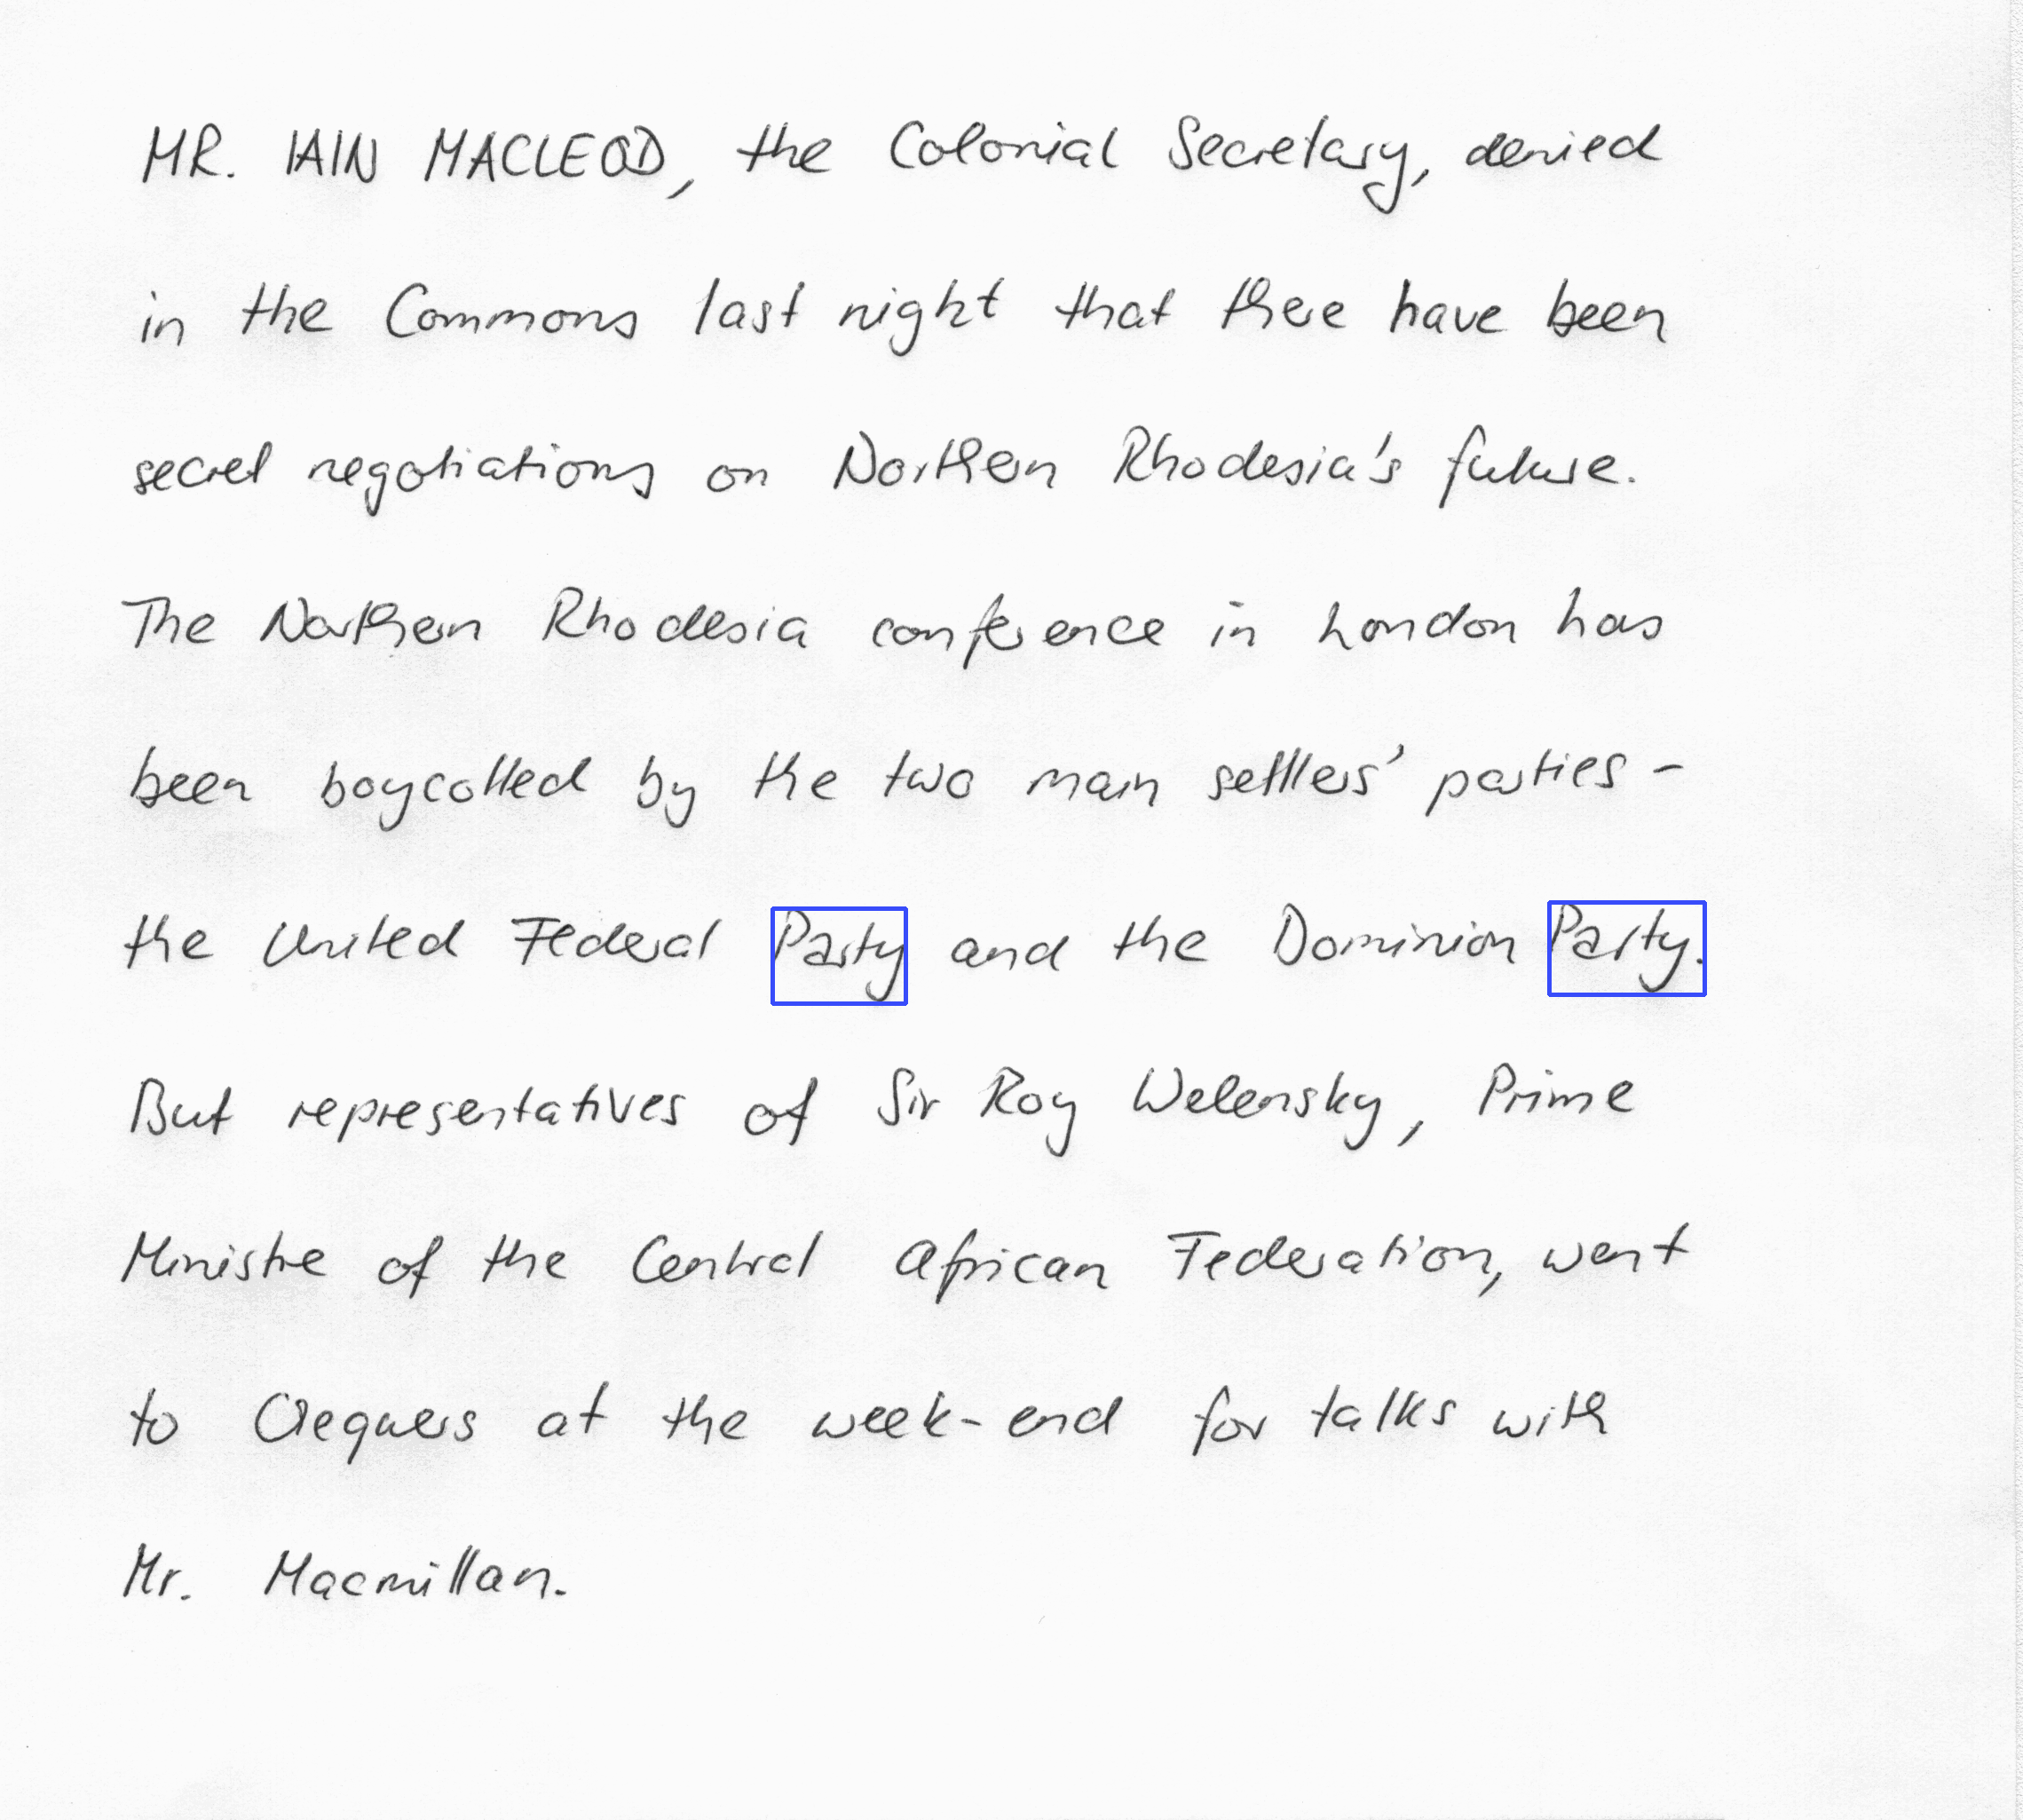 MR. IAIN MACLEOD, the Colonial Secretary, denied
in the Commons last night that there have been
secret negotiations on Northern Rhodesia's future.
The Northern Rhodesia conference in London has
been boycotted by the two main settlers' parties -
the United Federal Party and the Dominion Party.
But representatives of Sir Roy Welensky, Prime
Ministre of the Central African Federation, went
to Chequers at the week-end for talks with
Mr. Macmillan.